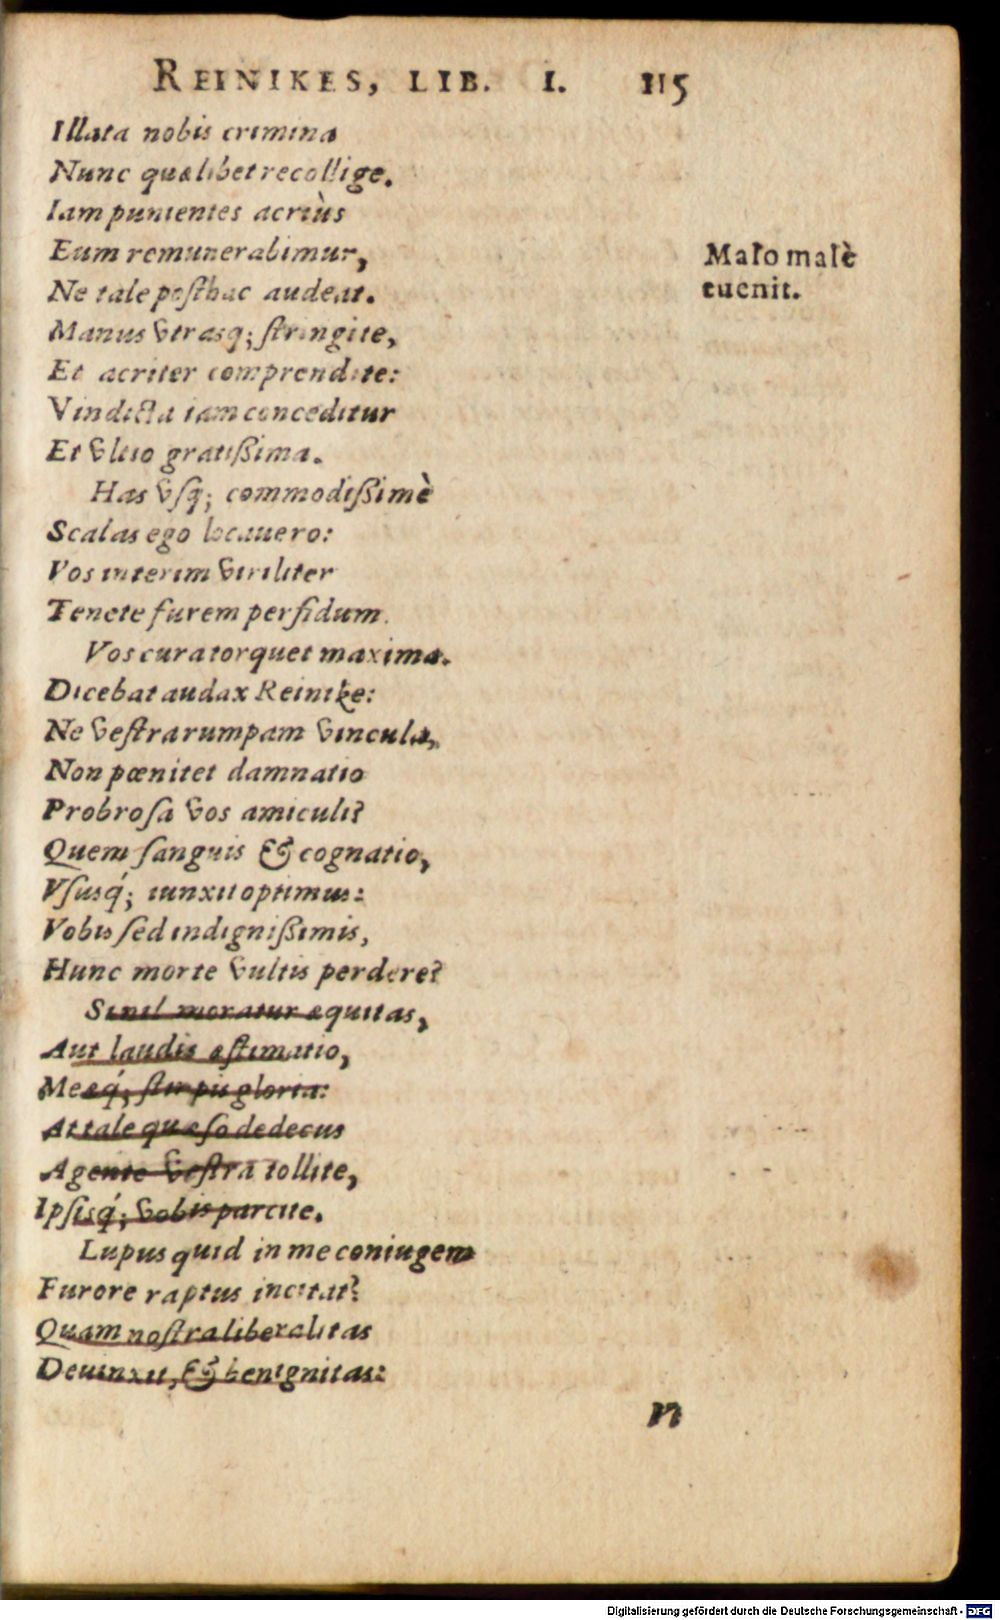 REINIKES, LIB. I. 115
Illata nobis crimina
Nunc quælibet recollige.
Iam punientes acriùs
Eum remunerabimur,
Malo malè
euenit.
Ne tale posthac audeat.
Manus vtrasq; stringite,
Et acriter comprendite:
Vindicta iam conceditur
Et vltio gratißima.
Has vsq; commodißimè
Scalas ego locauero:
Vos interim viriliter
Tenete furem perfidum.
Vos cura torquet maxima.
Dicebat audax Reinike:
Ne vestra rumpam vincula,
Non pœnitet damnatio
Probrosa vos amiculi?
Quem sanguis & cognatio,
Vsusq́; iunxit optimus:
Vobis sed indignißimis,
Hunc morte vultis perdere?
Si nil moratur æquitas,
Aut laudis æstimatio,
Meæq́; stirpis gloria:
At tale quæso dedecus
A gente vestra tollite,
Ipsisq́; vobis parcite.
Lupus quid in me coniugem
Furore raptus incitat?
Quam nostra liberalitas
Deuinxit, & benignitas:
Digitalisierung gefördert durch die Deutsche Forschungsgemeinschaft - DFG